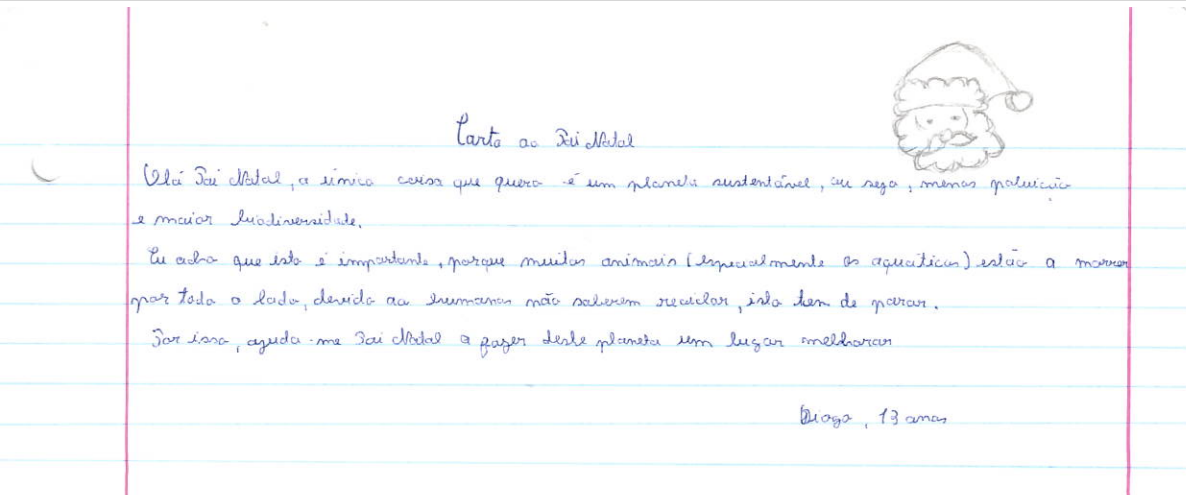 Carta ao Pai Natal
Olá Pai Natal, a única coisa que quero é um planeta sustentável, ou seja, menos poluição
e maior biodiversidade.
Eu acho que isto é importante, porque muitos animais (especialmente os aquáticos) estão a morrer
por todo o lado, devido ao humanos não saberem reciclar, isto tem de parar.
Por isso, ajuda-me Pai Natal a fazer deste planeta um lugar melhorar
Diogo, 13 anos